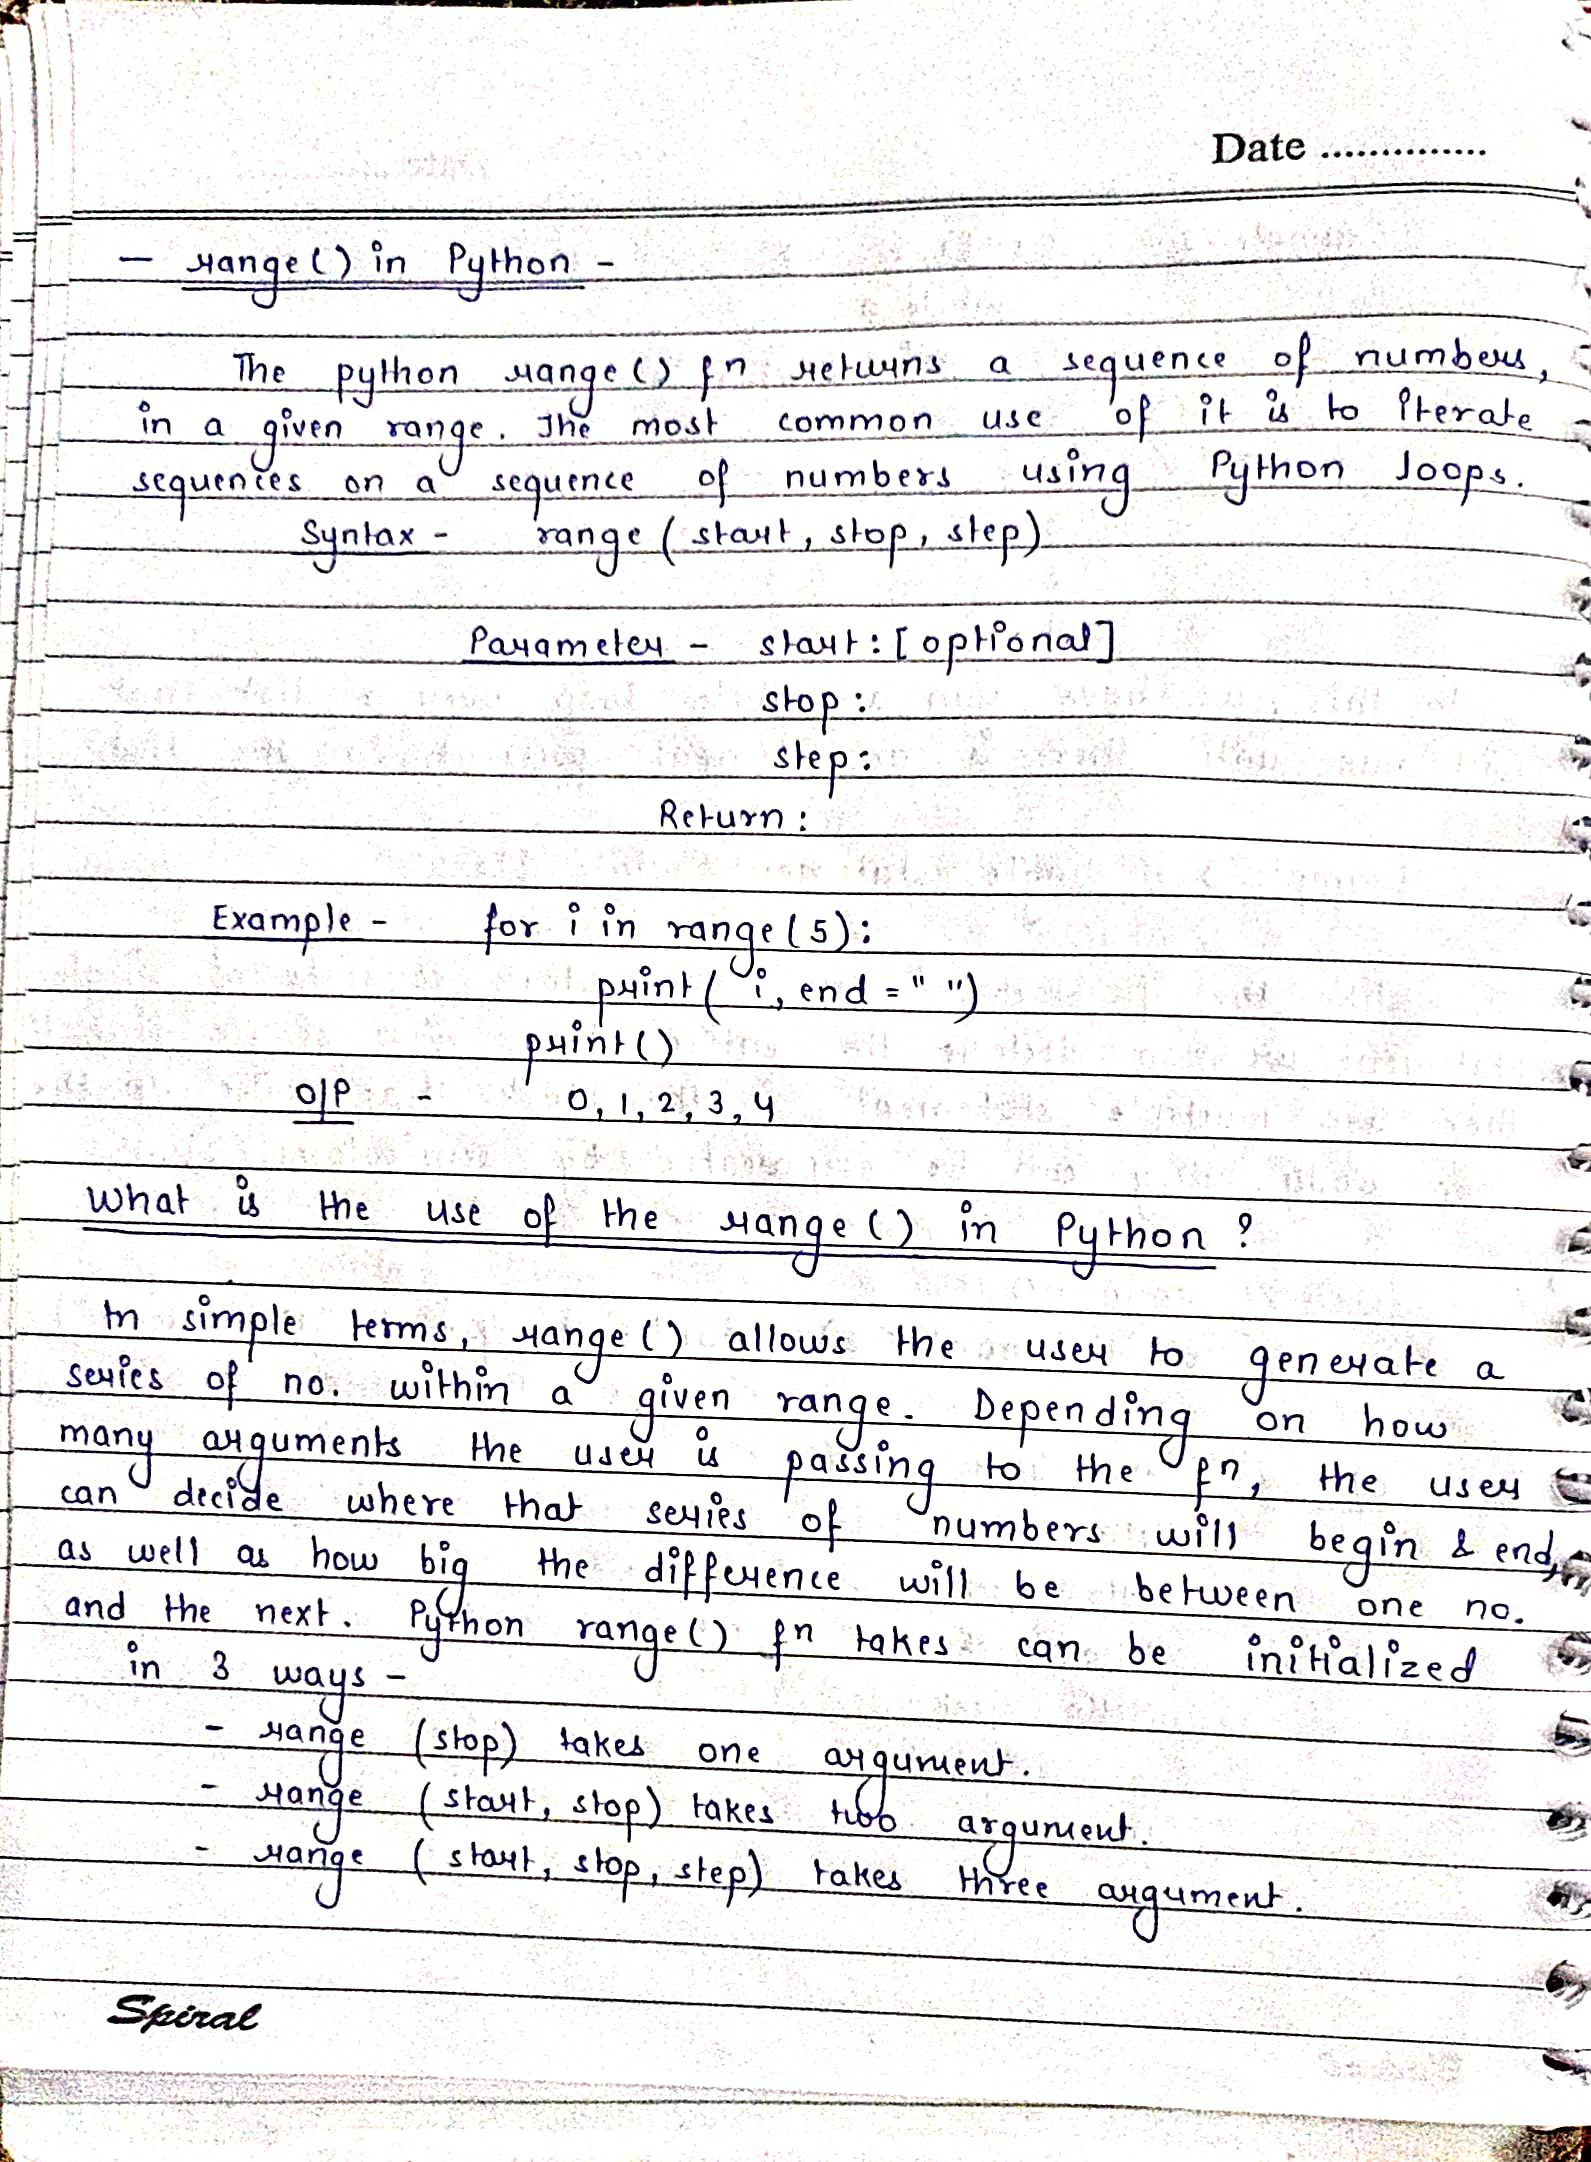 Date ..............
— range() in Python -
The python range() fn returns a sequence of numbers,
in a given range. The most common use of it is to iterate
sequences on a sequence of numbers using Python loops.
Syntax - range (start, stop, step)
Parameter - start: [optional]
stop:
step:
Return:
Example - for i in range(5):
print( i, end = " ")
print()
O/P - 0, 1, 2, 3, 4
What is the use of the range() in Python ?
In simple terms, range() allows the user to generate a
series of no. within a given range. Depending on how
many arguments the user is passing to the fn, the user
can decide where that series of numbers will begin & end,
as well as how big the difference will be between one no.
and the next. Python range() fn takes can be initialized
in 3 ways -
- range (stop) takes one argument.
- range (start, stop) takes two argument.
- range (start, stop, step) takes three argument.
Spiral